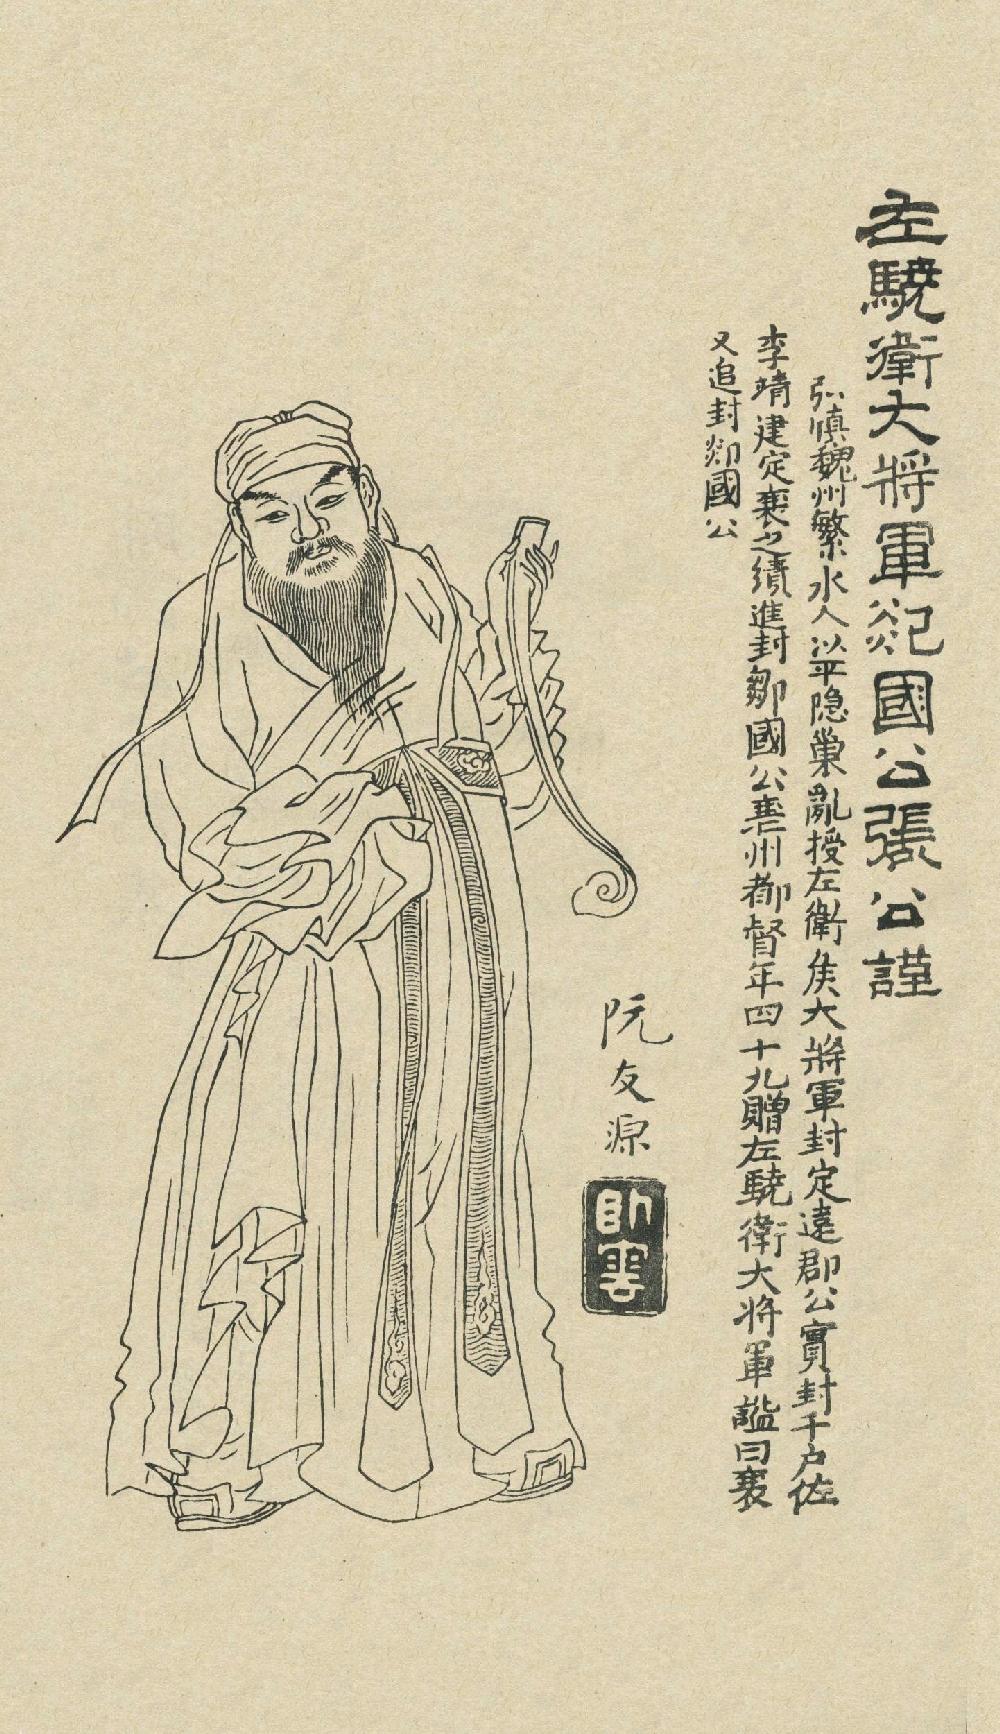 左驍衛大將軍郯國公張公謹
弘慎魏州繁水人以平隐巢亂授左衛矦大將軍封定遠郡公實封千户佐
李靖建定襄之績進封鄒國公襄州都督年四十九贈左驍衛大將軍諡曰襄
又追封郯國公
阮友源